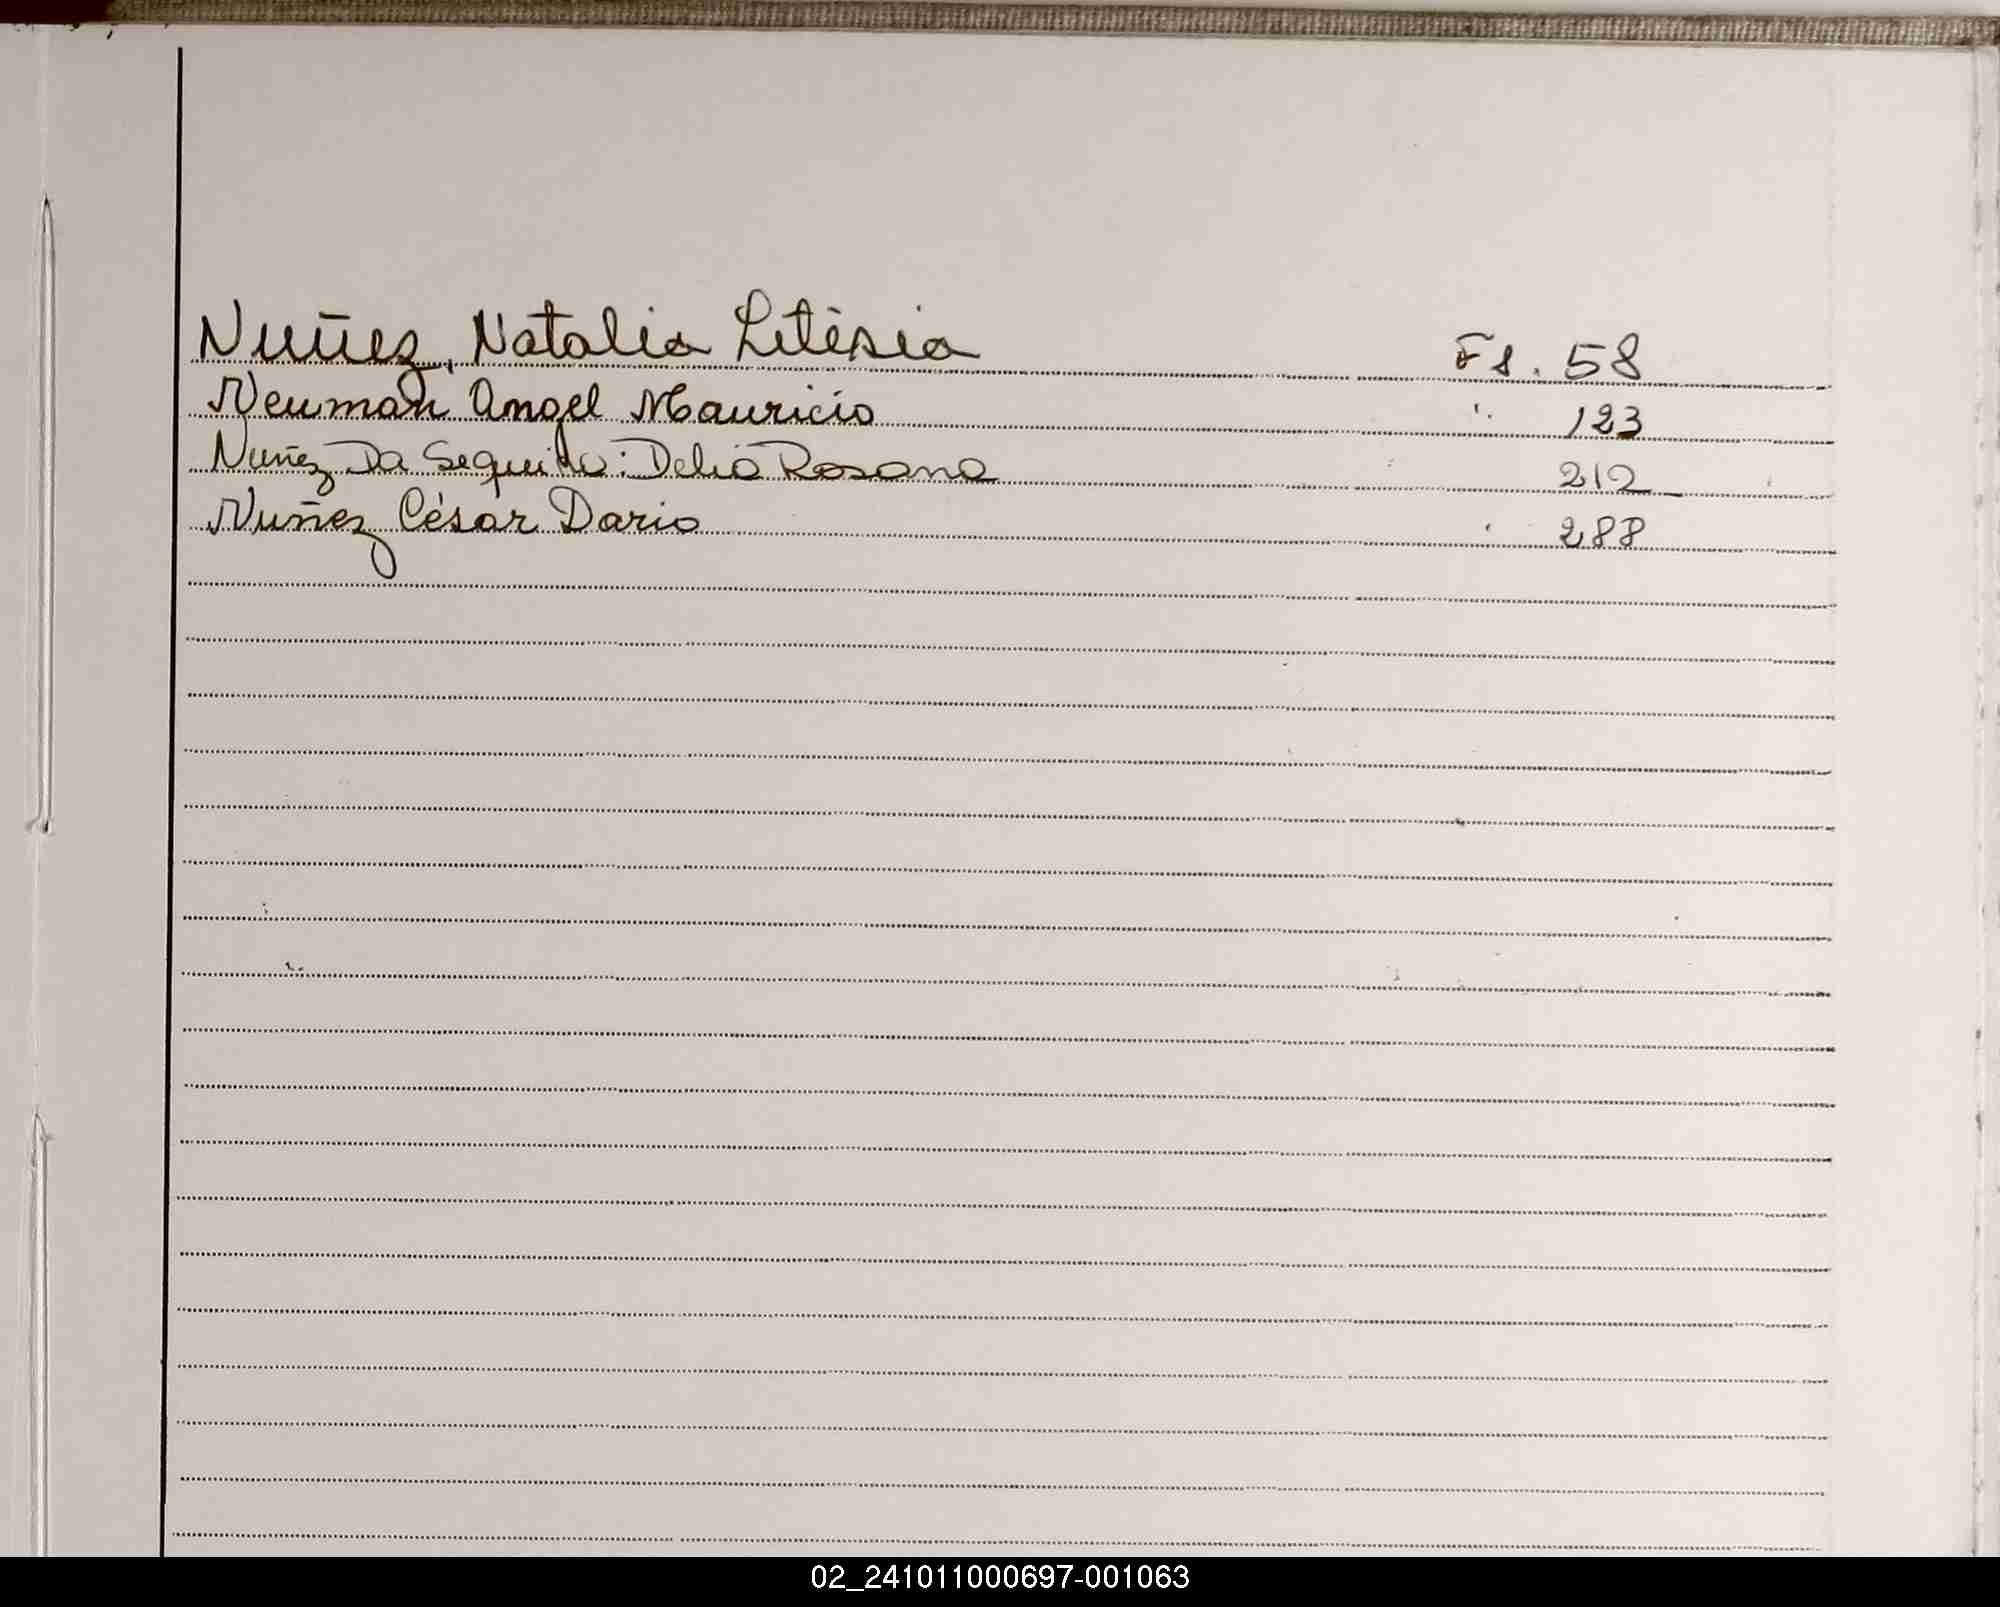 Nuñez, Natalia Litèsia Fs. 58
Neuman Angel Mauricio " 123
Nuñez Da Sequito: Delia Rosana 212
Nuñez César Dario " 288
02_241011000697-001063